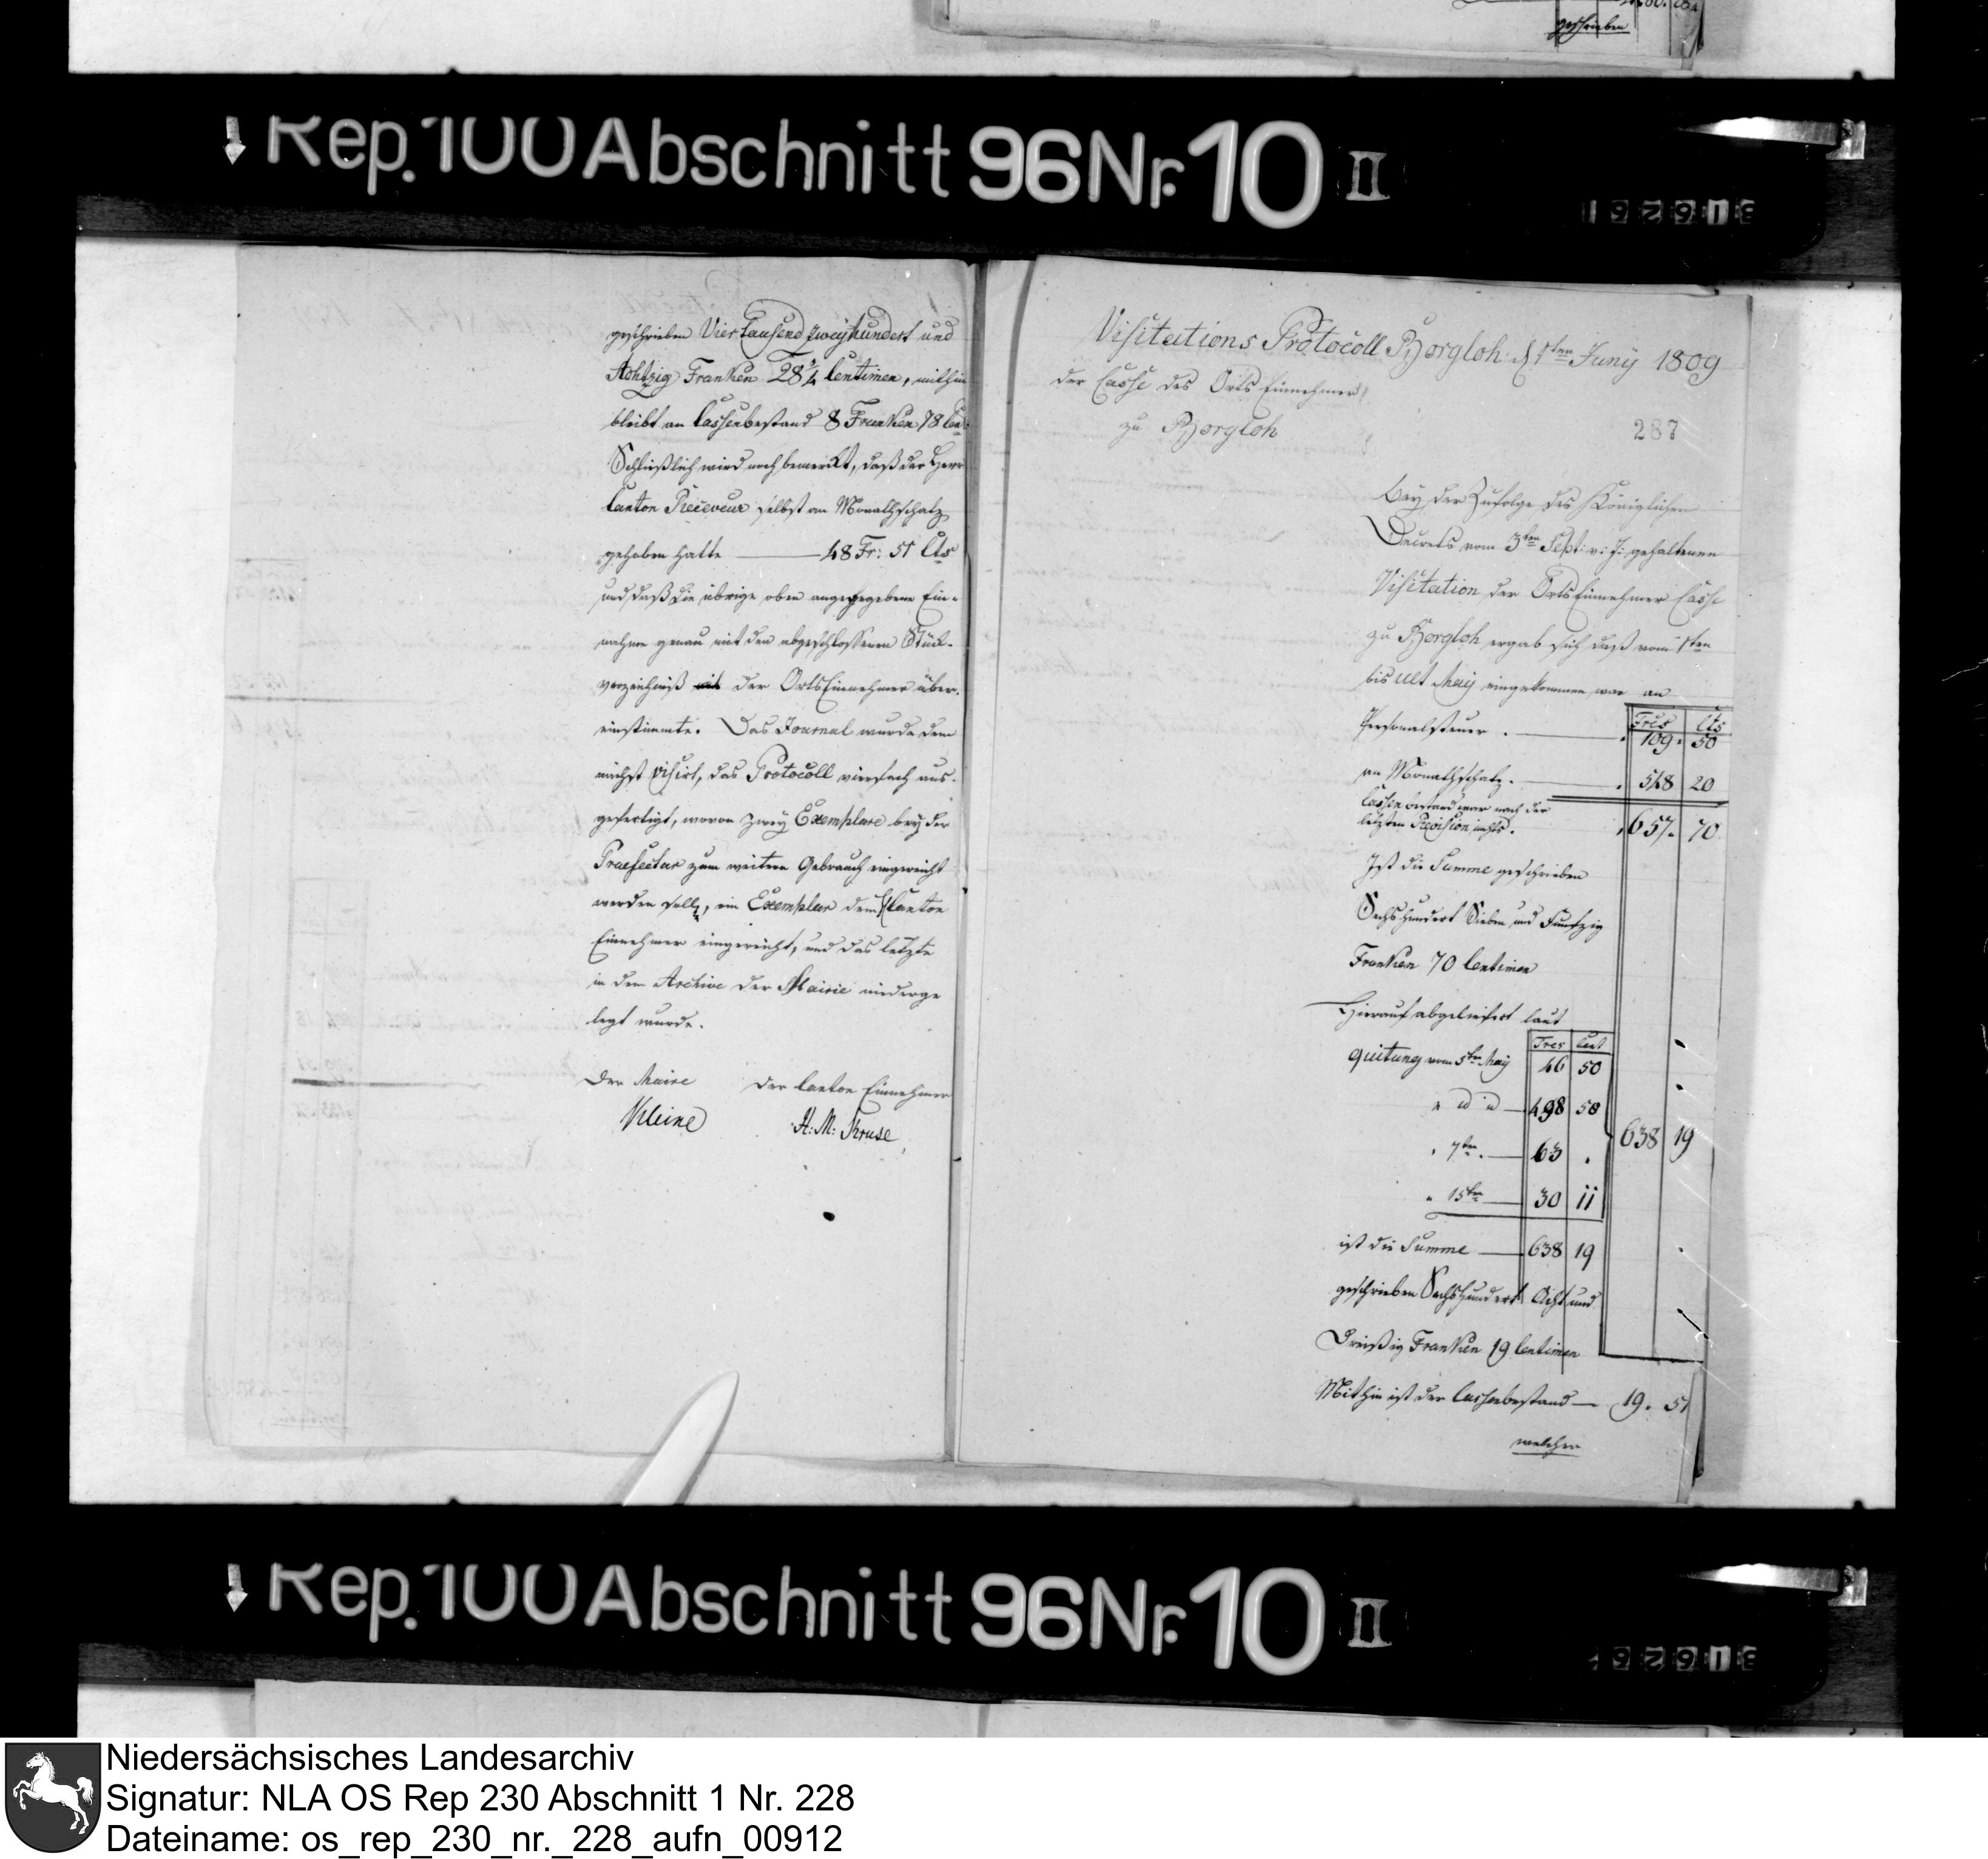 geschrieben
Rep. 100 Abschnitt 96 Nr. 10 II
geschrieben Vier tausend zweyhundert und
Achtzig Franken 28 3/4 Centimen, mithin
bleibt an Cassenbestand 8 Franken 78 Cen
Schließlich wird noch bemerkt, daß der Herr
Canton Receveur selbst an Monathschatz
gehoben hatte 48 Fr: 51 Cts
und daß die übrige oben angegegebene Ein-
nahme genau mit den abgeschlossenen Stück-
verzeichniß der Ortseinnehmer über-
einstimmte. Das Journal wurde dem
nächst visirt, das Protocoll vierfach aus-
gefertigt, wovon zwey Exemplare bey der
Praefectur zum weitern Gebrauch eingereicht
werden soll, ein Exemplar dem Canton
Einnehmer eingereicht, und das letzte
in dem Archive der Mairie niederge
legt wurde.
Der Maire Der Canton Einnehmer
Kleine H: M: Kruse
Visitations Protocoll Borgloh d 1ten Juny 1809
der Casse des Orts Einnehmers
zu Borgloh
287
Bey der Zufolge des Königlichen
Decrets vom 3ten Sept: v: J: gehaltenen
Visitation der Ortseinnehmer Casse
zu Borgloh ergab sich daß vom 1ten
bis ult May eingekommen war an
Frcs Cts
Personalsteuer . 109. 50
an Monathschatz. 548 20
Cassenbestand war nach der
letzten Revision nichts. 657. 70
Ist die Summe geschrieben
Sechshundert Sieben und Funfzig
Franken 70 Centimen
Hierauf abgeliefert laut
Frcs Cent
Quitung vom 5ten May 46 50
" d d 498 50
" 7ten 63 .
638 19
" 15ten 30 11
ist die Summe 638 19
geschrieben Sechshundert Acht und
Dreißig Franken 19 Centimen
Mithin ist der Cassenbestand 19. 51
welcher
Rep. 100 Abschnitt 96 Nr. 10 II
Niedersächsisches Landesarchiv
Signatur: NLA OS Rep 230 Abschnitt 1 Nr. 228
Dateiname: os_rep_230_nr._228_aufn_00912